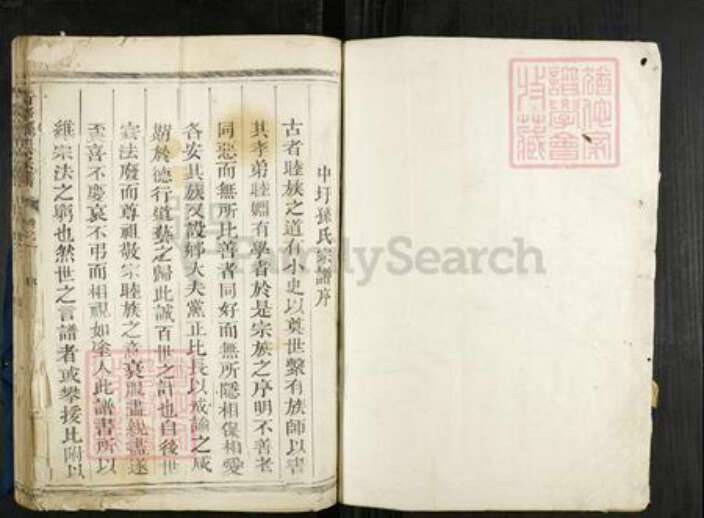 中圩孫氏宗譜序
古者睦族之道有小史以奠世繫有族師以書
其孝弟睦婣有學者於是宗族之序明不善者
同惡而無所比善者同好而無所隱相保相愛
各安其族又設鄉大夫黨正比長以戒諭之咸
期於德行道藝之歸此誠百世之計也自後世
宗法廢而尊祖敬宗睦族之意衰服盡親盡遂
至喜不慶哀不弔而相視如塗人此譜書所以
維宗法之窮也然世之言譜者或攀援比附以
譜學會
收藏
FamilySearch